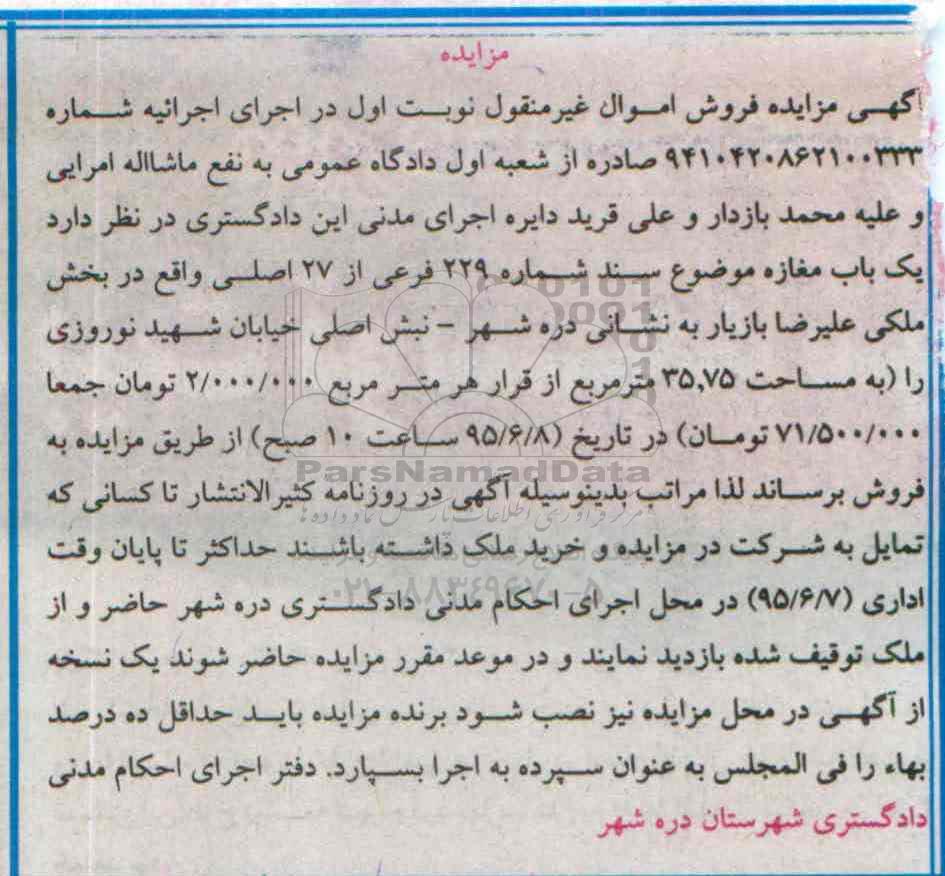 مزایده
آگهی مزایده فروش اموال غیرمنقول نوبت اول در اجرای اجرائیه شماره
۹۴۱۰۴۲۰۸۶۲۱۰۰۳۳۳ صادره از شعبه اول دادگاه عمومی به نفع ماشااله امرایی
و علیه محمد بازدار و علی قرید دایره اجرای مدنی این دادگستری در نظر دارد
یک باب مغازه موضوع سند شماره ۲۲۹ فرعی از ۲۷ اصلی واقع در بخش
ملکی علیرضا بازیار به نشانی دره شهر - نبش اصلی خیابان شهید نوروزی
را (به مساحت ۳۵,۷۵ مترمربع از قرار هر متر مربع ۲/۰۰۰/۰۰۰ تومان جمعا
۷۱/۵۰۰/۰۰۰ تومان) در تاریخ (۹۵/۶/۸ ساعت ۱۰ صبح) از طریق مزایده به
ParsNamadData
فروش برساند لذا مراتب بدینوسیله آگهی در روزنامه کثیرالانتشار تا کسانی که
تمایل به شرکت در مزایده و خرید ملک داشته باشند حداکثر تا پایان وقت
اداری (۹۵/۶/۷) در محل اجرای احکام مدنی دادگستری دره شهر حاضر و از
ملک توقیف شده بازدید نمایند و در موعد مقرر مزایده حاضر شوند یک نسخه
از آگهی در محل مزایده نیز نصب شود برنده مزایده باید حداقل ده درصد
بهاء را فی المجلس به عنوان سپرده به اجرا بسپارد. دفتر اجرای احکام مدنی
دادگستری شهرستان دره شهر